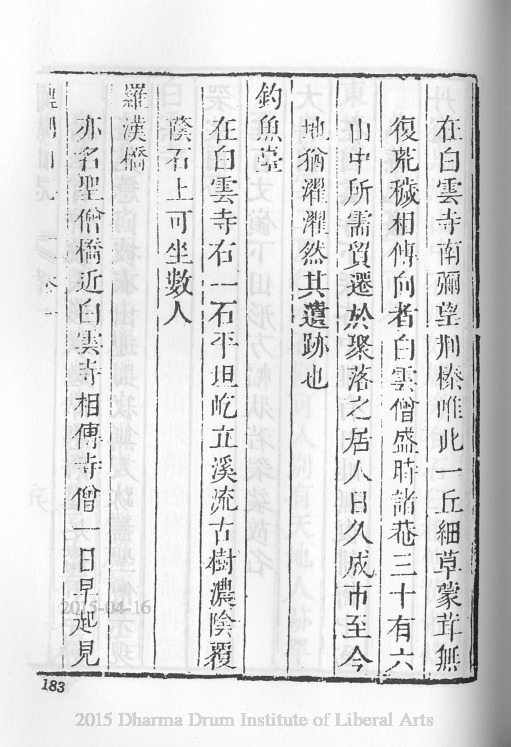 在白雲寺南彌望荆榛唯此一丘細草蒙茸無
復荒穢相傳向者白雲僧盛時諸菴三十有六
山中所需貿遷於聚落之居人日久成市至今
地猶濯濯然其遺跡也
釣魚臺
在白雲寺右一石平坦屹立溪流古樹濃陰覆
陰石上可坐數人
羅漢橋
亦名聖僧橋近白雲寺相傳寺僧一日早起見
183
2015-04-16
2015 Dharma Drum Institute of Liberal Arts